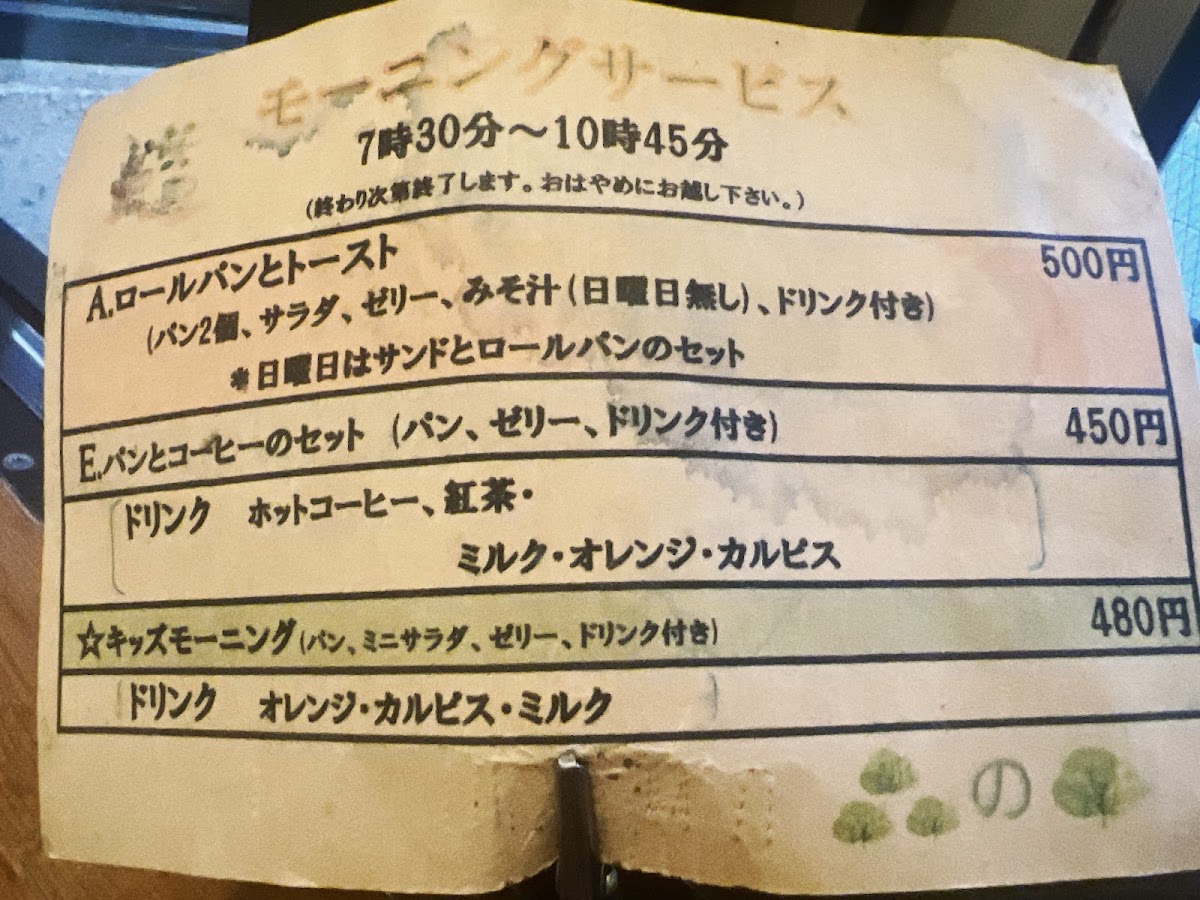 モーニングサービス
7時30分～10時45分
（終わり次第終了します。おはやめにお越し下さい。）
A.ロールパンとトースト 500円
（パン2個、サラダ、ゼリー、みそ汁（日曜日無し）、ドリンク付き）
＊日曜日はサンドとロールパンのセット
E.パンとコーヒーのセット （パン、ゼリー、ドリンク付き） 450円
ドリンク ホットコーヒー、紅茶・
ミルク・オレンジ・カルピス
☆キッズモーニング（パン、ミニサラダ、ゼリー、ドリンク付き） 480円
ドリンク オレンジ・カルピス・ミルク
の